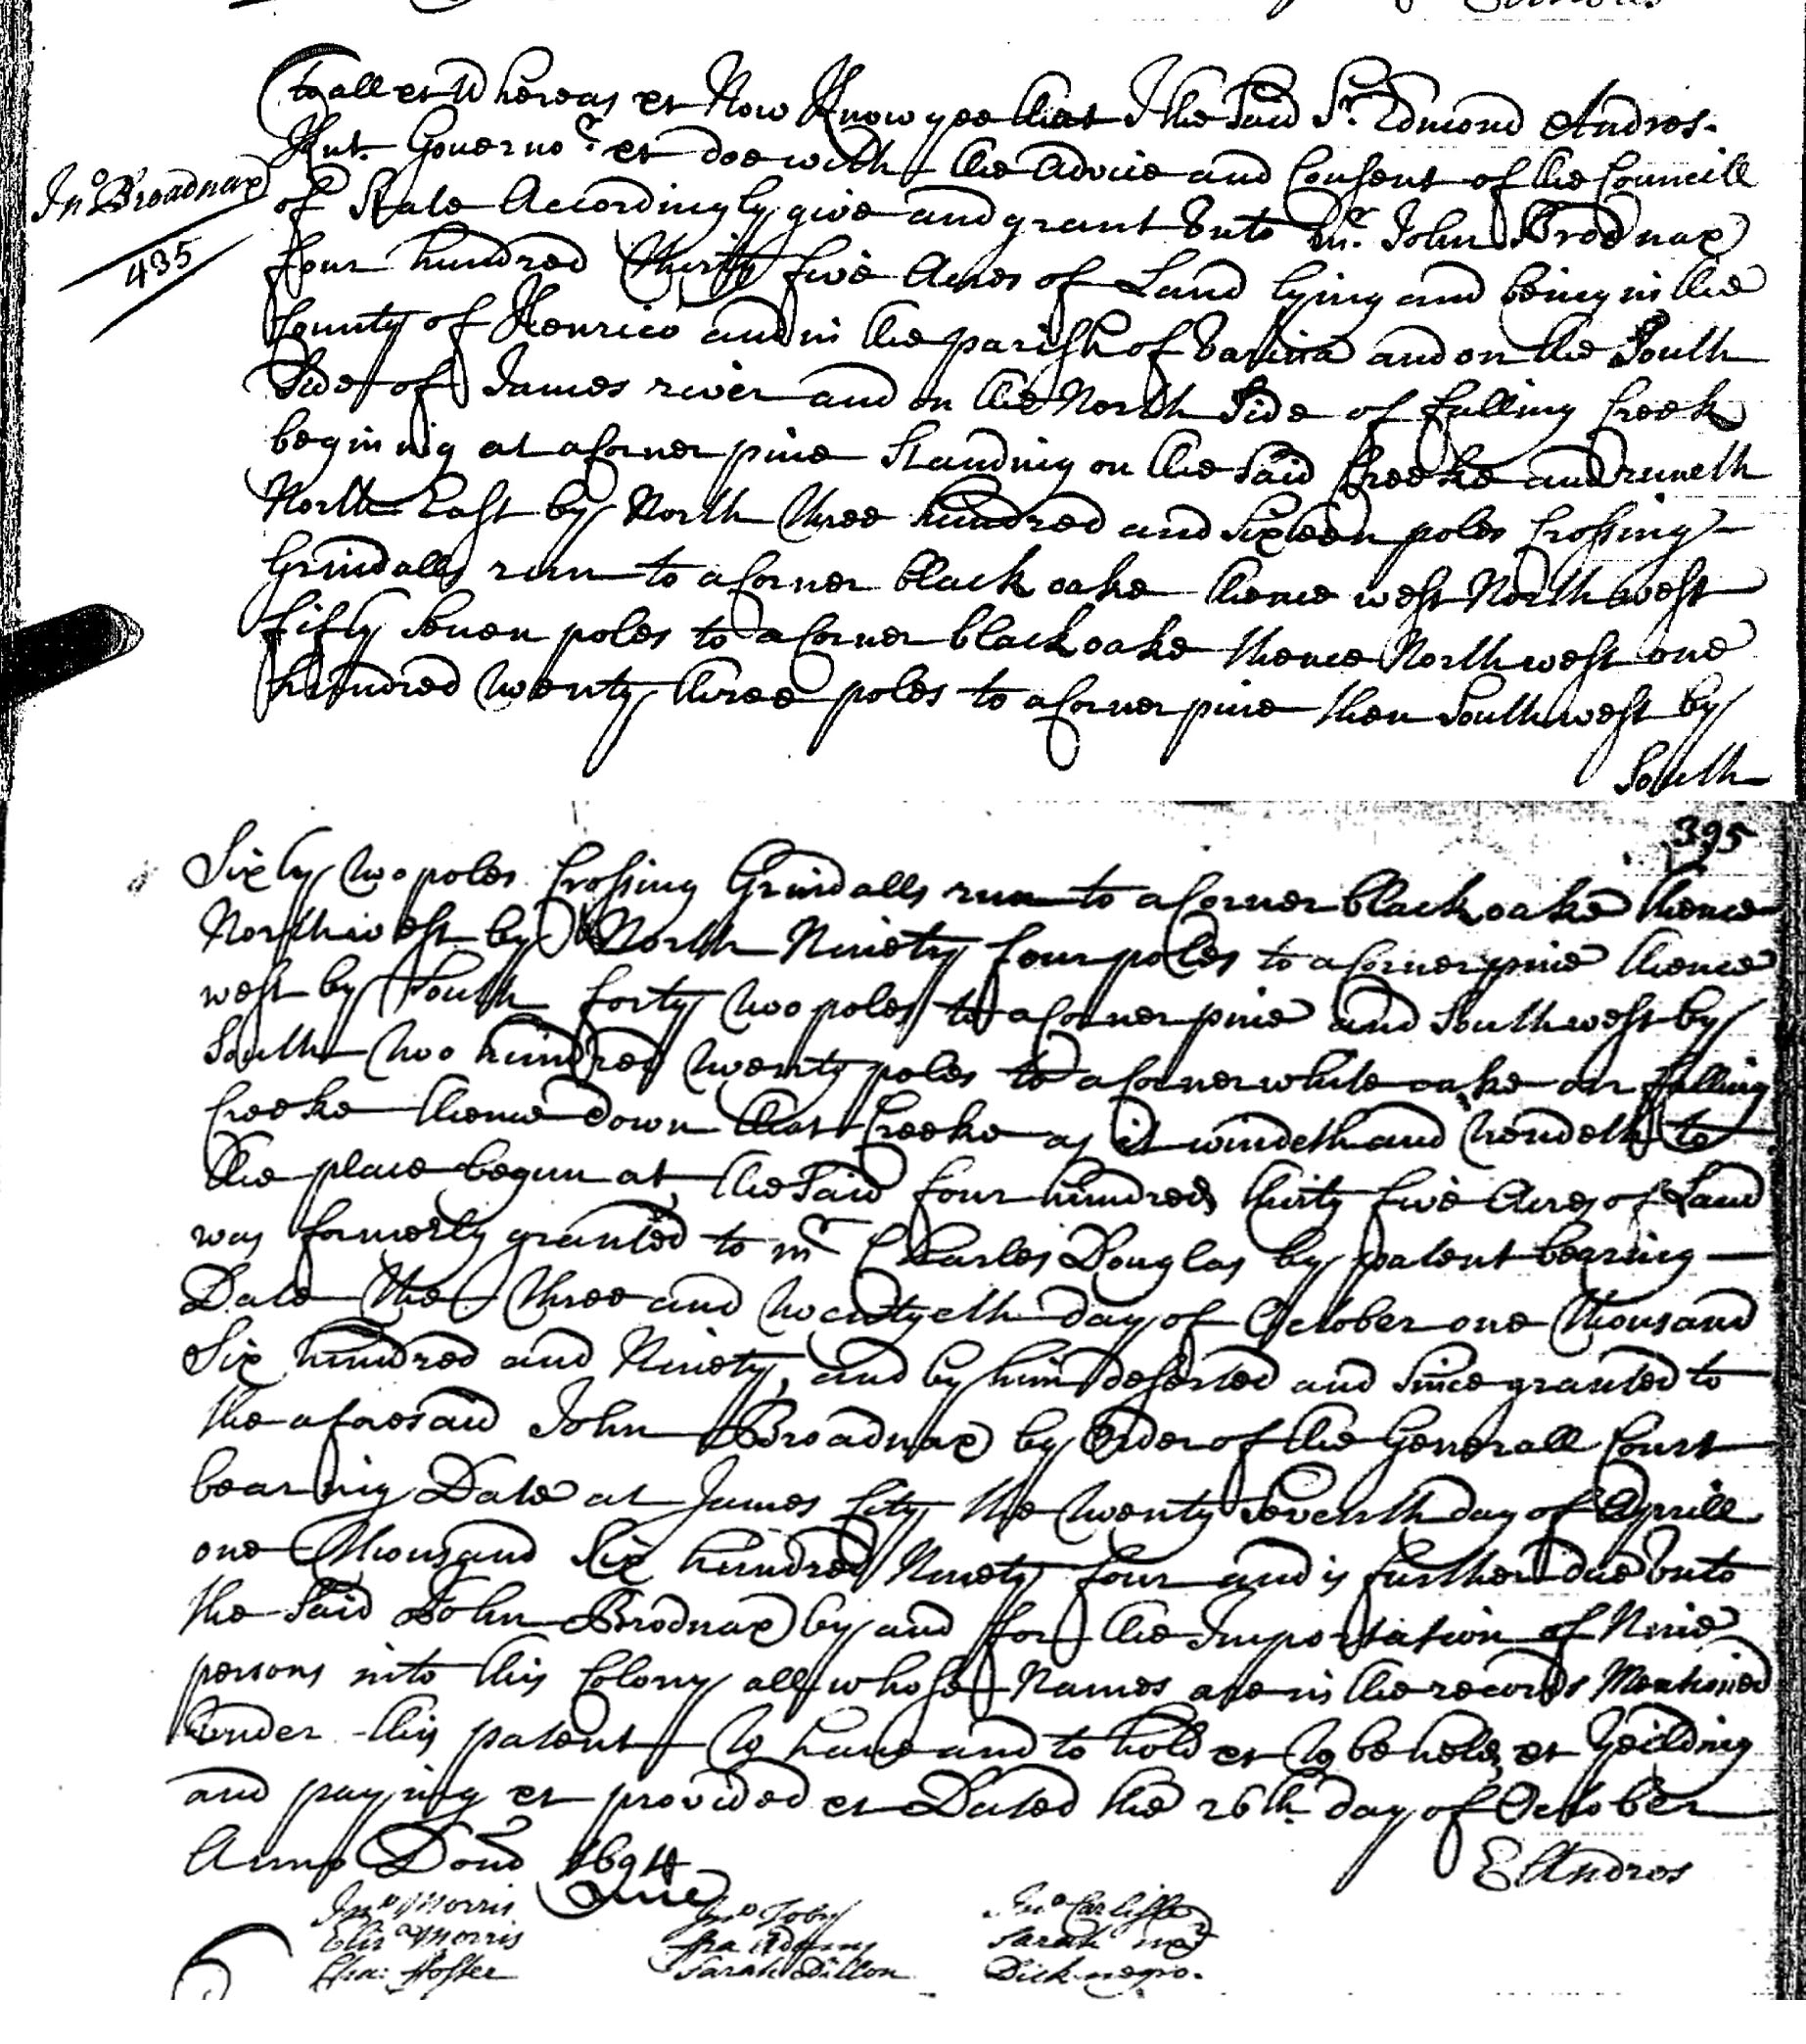 Jno Broadnax
435
to all et Whereas et Now Know yee that I the Said Sr. Edmond Andros.
Knt. Governor et doe with the advice and Consent of the Councill
of State Accordingly give and grant Unto Mr. John Brodnax
four hundred thirty five Acres of Land lying and being in the
County of Henrico and in the parish of Varina and on the South
Side of James river and on the North Side of falling Creek
begining at a Corner pine Standing on the Said Creeke and runeth
North East by North three hundred and Sixteen poles Crossing
Grindalls run to a Corner black oake thence west North west
fifty Seven poles to a Corner black oake thence North west one
hundred twenty three poles to a Corner pine then South west by
South
395
Sixty two poles Crossing Grindalls run to a Corner black oake thence
North west by North Ninety four poles to a Corner pine thence
west by South forty two poles to a Corner pine and South west by
South two hundred twenty poles to a Corner white oake on falling
Creeke thence down that Creeke as it windeth and trendeth to
the place begun at, the Said four hundred thirty five Acres of Land
was formerly granted to mr Charles Douglas by patent bearing
Date the three and twentyeth day of October one thousand
Six hundred and Ninety, and by him deserted and Since granted to
the aforesaid John Broadnax by Order of the Generall Court
bearing Date at James City the twenty Seventh day of Aprill
one thousand Six hundred Ninety four and is further due Unto
the Said John Brodnax by and for the Importation of Nine
persons into this Colony all whose Names are in the records Mentioned
Under this patent To have and to hold et To be held, et Yeilding
and paying et provided et Dated the 26th. day of October
Anno Dom 1694
E Andros
Jno Morris Jno Toby Jno Carlisle
Eliz Morris Fra Adams Sarah
Cha: Foster Sarah Dillon Dick negro.